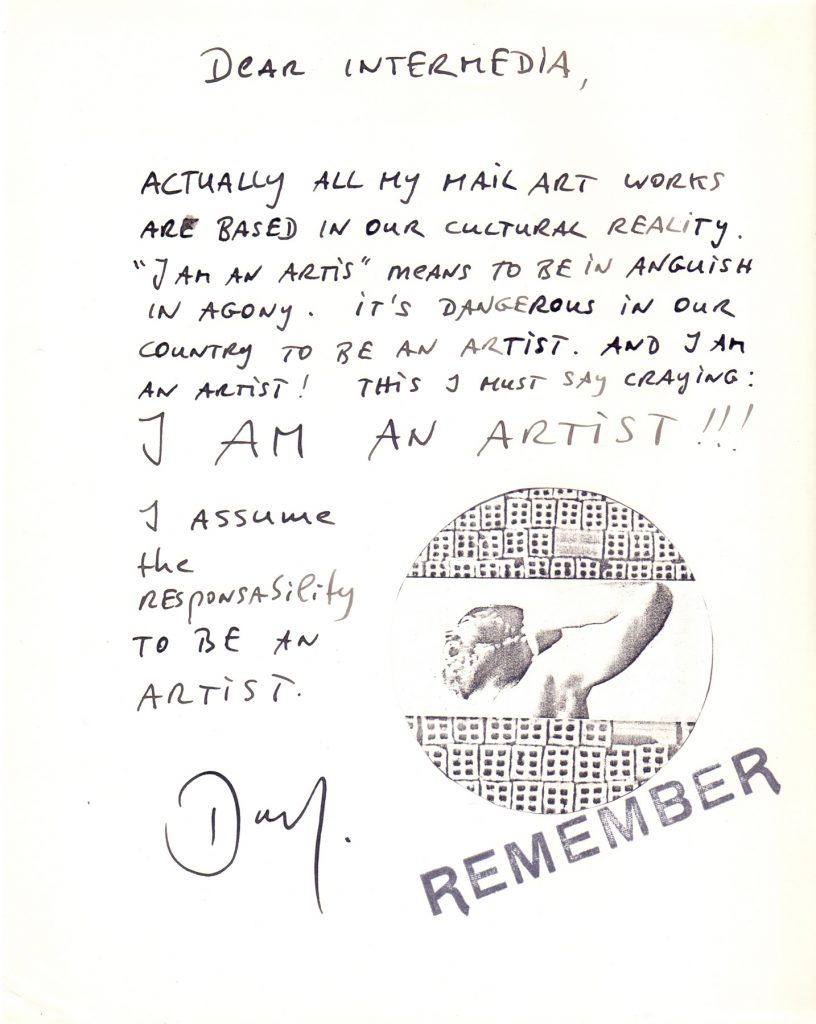 Dear INTERMEDIA,
ACTUALLY ALL MY MAIL ART WORKS
ARE BASED IN OUR CULTURAL REALITY.
"I AM AN ARTIS" MEANS TO BE IN ANGUISH
IN AGONY. IT'S DANGEROUS IN OUR
COUNTRY TO BE AN ARTIST. AND I AM
AN ARTIST! THIS I MUST SAY CRAYING:
I AM AN ARTIST!!!
I ASSUME
the
RESPONSABILITY
TO BE AN
ARTIST.
REMEMBER